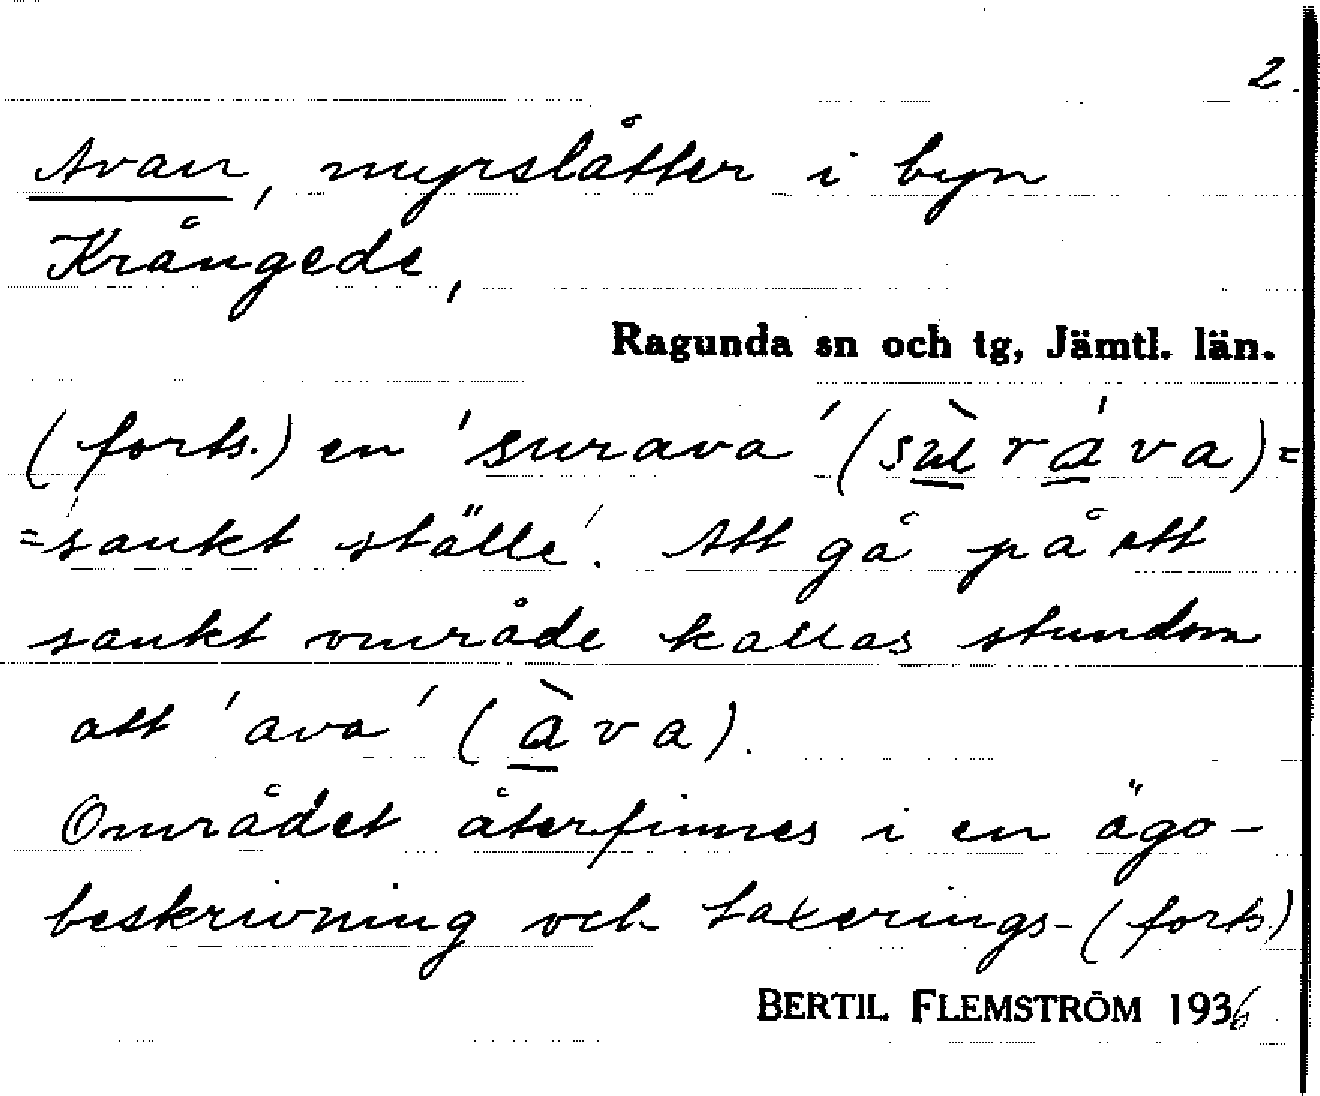 2.
Avan, myrslåtter i byn
Krångede,
Ragunda sn och tg, Jämtl. län.
(forts.) en 'surava' (sùráva) =
= 'sankt ställe'. Att gå på ett
sankt område kallas stundom
att 'ava' (àva).
Området återfinnes i en ägo-
beskrivning och taxerings- (forts.)
BERTIL FLEMSTRÖM 1936